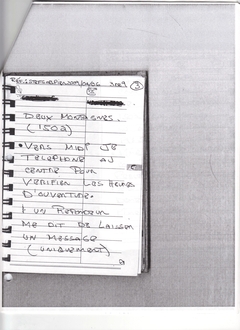 2009 3
DEUX MONTAGNES.
(1500)
• VERS MIDI JE
TELEPHONE AU
CENTRE POUR
VERIFIER LES HEURES
D'OUVERTURE.
UN REPONDEUR
ME DIT DE LAISSER
UN MESSAGE
(UNIQUEMENT)